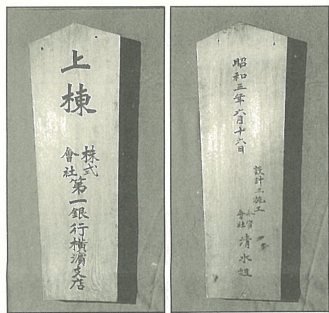 上棟
株式會社第一銀行橫濱支店
昭和五年六月十六日
設計並施工
合資會社清水組